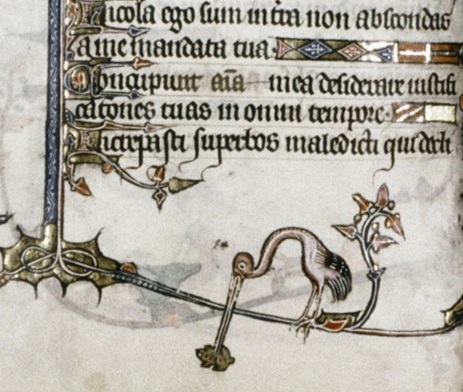 Incola ego sum in t̄ra non abscondas
a me mandata tua
Concupiuit aīa mea desiderare iustifi
cationes tuas in omni tempore.
Increpasti superbos maledicti qui decli